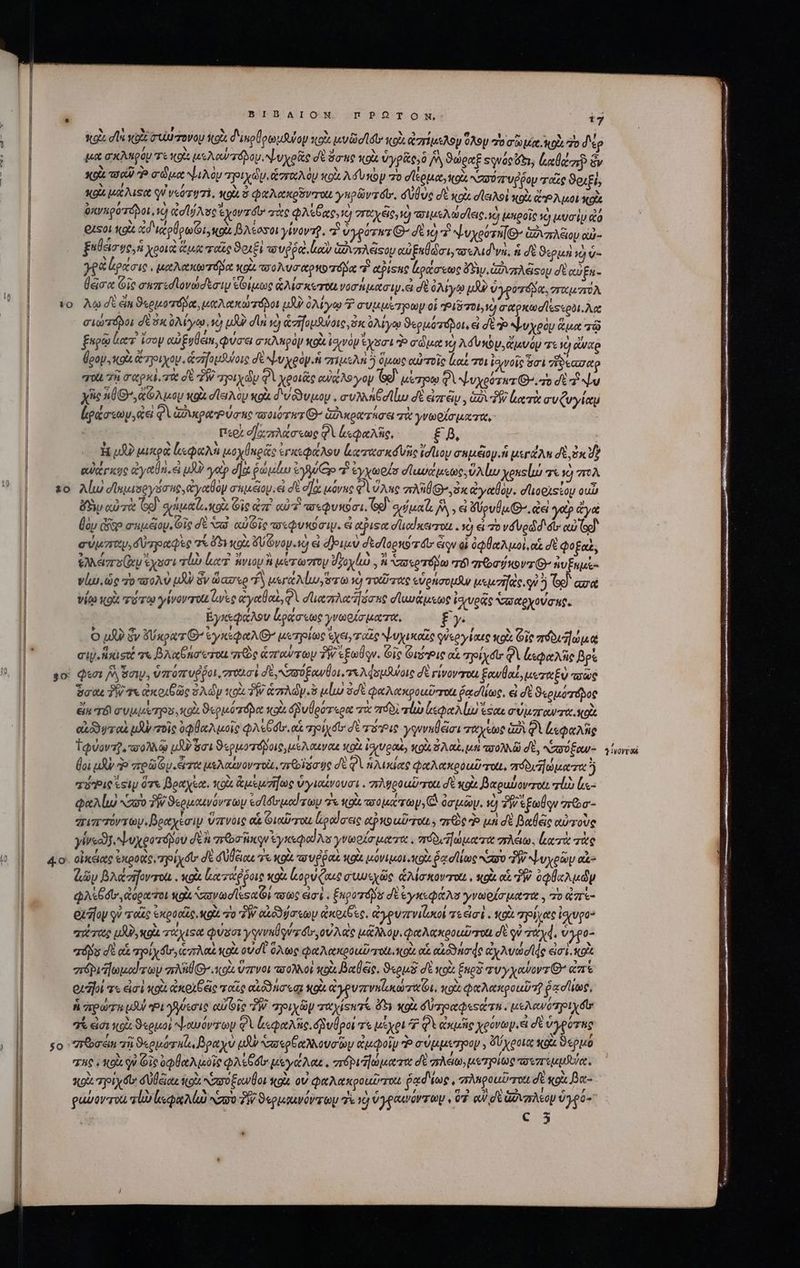 ΒΙΒΛΙΟΝ ΠΡΩΤΟΝ. 17
καὶ δὴ καὶ σύντονον καὶ διηρθρωμένον καὶ μυῶδες καὶ ἀπίμελον ὅλον τὸ σῶμα. καὶ τὸ δέρ
μα σκληρόν τε καὶ μελαντέρον. ψυχρᾶς δὲ οὔσης καὶ ὑγρᾶς, ὁ μὲν θώραξ στενός ἐστι, καθάπερ ἂν
καὶ παν τὸ σῶμα ψιλὸν τριχῶν. ἁπαλὸν καὶ λευκὸν τὸ δέρμα, καὶ ὑπόπυρρον ταῖς θριξὶ,
καὶ μάλιστα ἐν νεότητι, καὶ οὐ φαλακροῦνται γηρῶντες. εὐθὺς δὲ καὶ δειλοὶ καὶ ἄτολμοι καὶ
ὀκνηρότεροι, καὶ ἀδήλους ἔχοντες τὰς φλέβας, καὶ παχεῖς, καὶ πιμελώδεις, καὶ μηροῖς καὶ μυσὶν ἀό
ριστοι καὶ ἀδιάρθρωτοι, καὶ βλέσσοι γίνονται. τῆς ὑγρότητος δὲ καὶ τῆς ψυχρότητος ἐπιπλέον αὐ-
ξηθείσης, ἡ χροιὰ ἅμα ταῖς θριξὶ πυρρὰ. κἂν ἐπιπλεῖστον αὐξηθῶσι, πελιδνή. ἡ δὲ θερμὴ καὶ ὑ-
γρὰ κρᾶσις, μαλακωτέρα καὶ πολυσαρκοτέρα τῆς ἀρίστης κράσεως ἐστιν. ἐπιπλεῖστον δὲ αὐξη-
θεῖσα τοῖς σηπεδονώδεσιν ἑτοίμως ἁλίσκεται νοσήμασιν. εἰ δὲ ὀλίγω μὲν ὑγροτέρα, παμπόλ
10 λω δὲ εἴη θερμοτέρα, μαλακώτεροι μὲν ὀλίγω τοῦ συμμέτρου οἱ τοιοῦτοι, καὶ σαρκωδέστεροι. λα
σιώτεροι δὲ οὐκ ὀλίγω, καὶ μὲν δὴ καὶ ἁπτομένοις, οὐκ ὀλίγω θερμότεροι. εἰ δὲ τὸ ψυχρὸν ἅμα τῶ
ξηρῶ κατ' ἴσον αὐξηθείη, φύσει σκληρὸν καὶ ἰσχνὸν ἔχουσι τὸ σῶμα καὶ λευκὸν, ἄμυόν τε καὶ ἄναρ
θρον, καὶ ἄτριχον. ἁπτομένοις δὲ ψυχρόν. ἡ πιμελὴ δὲ ὅμως αὐτοῖς καί τοι ἰσχνοῖς οὖσι παρέσπαρ
ται τῇ σαρκί. τὰ δὲ τῶν τριχῶν τῆς χροιᾶς ἀνάλογον τῶ μέτρω τῆς ψυχρότητος. τὸ δὲ τῆς ψυ
χῆς ἦθος, ἄτολμον καὶ δειλὸν καὶ δύσθυμον, συλλήβδην δὲ εἰπεῖν, ἐπὶ τῶν κατὰ συζυγίαν
κράσεων, ἀεὶ τῆς ἐπικρατούσης ποιότητος ἐπικρατήσει τὰ γνωρίσματα.
Περὶ διαπλάσεως τῆς κεφαλῆς. ξβ.
Ἡ μὲν μικρὰ κεφαλὴ μοχθηρᾶς ἐγκεφάλου κατασκευῆς ἴδιον σημεῖον. ἡ μεγάλη δὲ, οὐκ ἐξ
ἀνάγκης ἀγαθή. εἰ μὲν γὰρ διὰ ῥώμην ἐγένετο τῆς ἐγχωρίου δυνάμεως, ὕλην χρηστὴν τε καὶ πολ
20 λὴν δημιουργούσης, ἀγαθὸν σημεῖον. εἰ δὲ διὰ μόνης τῆς ὕλης πλῆθος, οὐκ ἀγαθόν. διοριστέον οὖν
ἐστιν αὐτὰ τῶ σχήματι, καὶ τοῖς ἀπ' αὐτοῦ πεφυκόσι. τῶ σχήματι μὲν, εἰ εὔρυθμος. ἀεὶ γὰρ ἀγα
θὸν τοῦτο σημεῖον. τοῖς δὲ ὑπ' αὐτοῖς πεφυκόσιν. εἰ ἄριστα διάκειται. καὶ εἰ τὸ νευρῶδες αὐτῶ
σύμπαν, εὔτροφές τέ ἐστι καὶ εὔτονον. καὶ εἰ δριμὺ δεδορκότες εἶεν οἱ ὀφθαλμοί. αἱ δὲ φοξαὶ,
νίω καὶ τούτω γίνονταί τινες ἀγαθαὶ, τῆς διαπλαττούσης δυνάμεως ἰσχυρᾶς ὑπαρχούσης.
Ἐγκεφάλου κράσεως γνωρίσματα. ξγ.
Ὁ μὲν οὖν εὔκρατος ἐγκέφαλος μετρίως ἔχει, ταῖς ψυχικαῖς ἐνεργείαις καὶ τοῖς περιττώμα
σιν. ἥκιστά τε βλαβήσεται πρὸς ἁπάντων τῶν ἔξωθεν. τοῖς τοιούτοις αἱ τρίχες τῆς κεφαλῆς βρέ
30 φεσι μὲν οὖσιν, ὑπόπυρροι. παισὶ δὲ, ὑπόξανθοι. τελουμένοις δὲ γίνονται ξανθαὶ, μεταξύ πως
οὖσαι τῶν τε ἀκριβῶς οὔλων καὶ τῶν ἁπλῶν. οὐ μὴν οὐδὲ φαλακροῦνται ῥαδίως. εἰ δὲ θερμότερος
εἴη τοῦ συμμέτρου, καὶ θερμότερα καὶ ἐρυθρότερα τὰ περὶ τὴν κεφαλήν ἐστι σύμπαντα. καὶ
αἰσθηταὶ μὲν τοῖς ὀφθαλμοῖς φλέβες. αἱ τρίχες δὲ τούτοις γεννηθεῖσι ταχέως ἐπὶ τῆς κεφαλῆς
φύονται. πολλῶ μὲν οὖσι θερμοτέροις, μέλαιναι καὶ ἰσχυραὶ, καὶ οὖλαι. μὴ πολλῶ δὲ, ὑπόξαν- γίνονται
θοι μὲν τὸ πρῶτον. εἶτα μελαίνονται. προϊούσης δὲ τῆς ἡλικίας φαλακροῦνται. περιττώματα δὲ
τούτοις ἐστὶν ὅτε βραχέα. καὶ ἀμέμπτως ὑγιαίνουσι. πληροῦνται δὲ καὶ βαρύνονται τὴν κε-
φαλὴν ὑπὸ τῶν θερμαινόντων ἐδεσμάτων τε καὶ πομάτων, καὶ ὀσμῶν. καὶ τῶν ἔξωθεν προσ-
πιπτόντων. βραχέσιν ὕπνοις αἱ τοιαῦται κράσεις ἀρκοῦνται, πρὸς τὸ μὴ δὲ βαθεῖς αὐτοὺς
γίνεσθαι. ψυχροτέρου δὲ ἢ προσῆκεν ἐγκεφάλου γνωρίσματα, περιττώματα πλείω, κατὰ τὰς
40 οἰκείας ἐκροάς. τρίχες δὲ εὐθεῖαί τε καὶ πυρραὶ καὶ μόνιμοι. καὶ ῥαδίως ὑπὸ τῶν ψυχρῶν αἰ-
τιῶν βλάπτονται. καὶ κατάρροις καὶ κορύζαις συνεχῶς ἁλίσκονται. καὶ αἱ τῶν ὀφθαλμῶν
φλέβες, ἀόρατοι καὶ ὑπνωδέστατοί πως εἰσί. ξηροτέρου δὲ ἐγκεφάλου γνωρίσματα, τὸ ἀπέ-
ριττον ἐν ταῖς ἐκροαῖς. καὶ τὸ τῶν αἰσθήσεων ἀκριβὲς. ἀγρυπνητικοί τε εἰσὶ. καὶ τρίχας ἰσχυρο-
τάτας μὲν, καὶ τάχιστα φύουσι γεννηθέντες, οὔλας μᾶλλον. φαλακροῦνται δὲ ἐν τάχει. ὑγρο-
τέρου δὲ αἱ τρίχες, ἁπλαῖ καὶ οὐδ' ὅλως φαλακροῦνται. καὶ αἱ αἰσθήσεις ἀχλυώδεις εἰσί. καὶ
περιττωμάτων πλῆθος. καὶ ὕπνοι πολλοὶ καὶ βαθεῖς. θερμοῦ δὲ καὶ ξηροῦ τυγχάνοντος ἀπέ
ριττοί τε εἰσὶ καὶ ἀκριβεῖς ταῖς αἰσθήσεσι καὶ ἀγρυπνητικώτατοι, καὶ φαλακροῦνται ῥαδίως.
ἡ πρώτη μὲν γένεσις αὐτοῖς τῶν τριχῶν ταχίστη τέ ἐστι καὶ εὐτροφεστάτη. μελανότριχές
τε εἰσι καὶ θερμοὶ ψαυόντων τῆς κεφαλῆς. ἐρυθροί τε μέχρι τοῦ τῆς ἀκμῆς χρόνου. εἰ δὲ ὑγρότης
50 προσείη τῇ θερμότητι, βραχὺ μὲν ὑπερβαλλουσῶν ἀμφοῖν τὸ σύμμετρον, εὔχροια καὶ θερμό
της, καὶ ἐν τοῖς ὀφθαλμοῖς φλέβες μεγάλαι, περιττώματα δὲ πλείω, μετρίως πεπεμμένα.
καὶ τρίχες εὐθεῖαι καὶ ὑπόξανθοι καὶ οὐ φαλακροῦνται ῥαδίως, πληροῦνται δὲ καὶ βα-
ρύνονται τὴν κεφαλὴν ὑπὸ τῶν θερμαινόντων τε καὶ ὑγραινόντων, ὅτ' ἂν δὲ ἐπιπλέον ὑγρό-
C 3